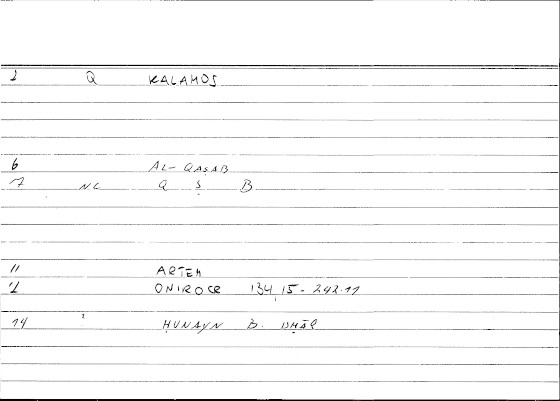 1 Q KALAMOS
6 AL-QAṢAB
7 NC Q Ṣ B
11 ARTEM
12 ONIROCR 134,15-242.11
14 ḤUNAYN B.